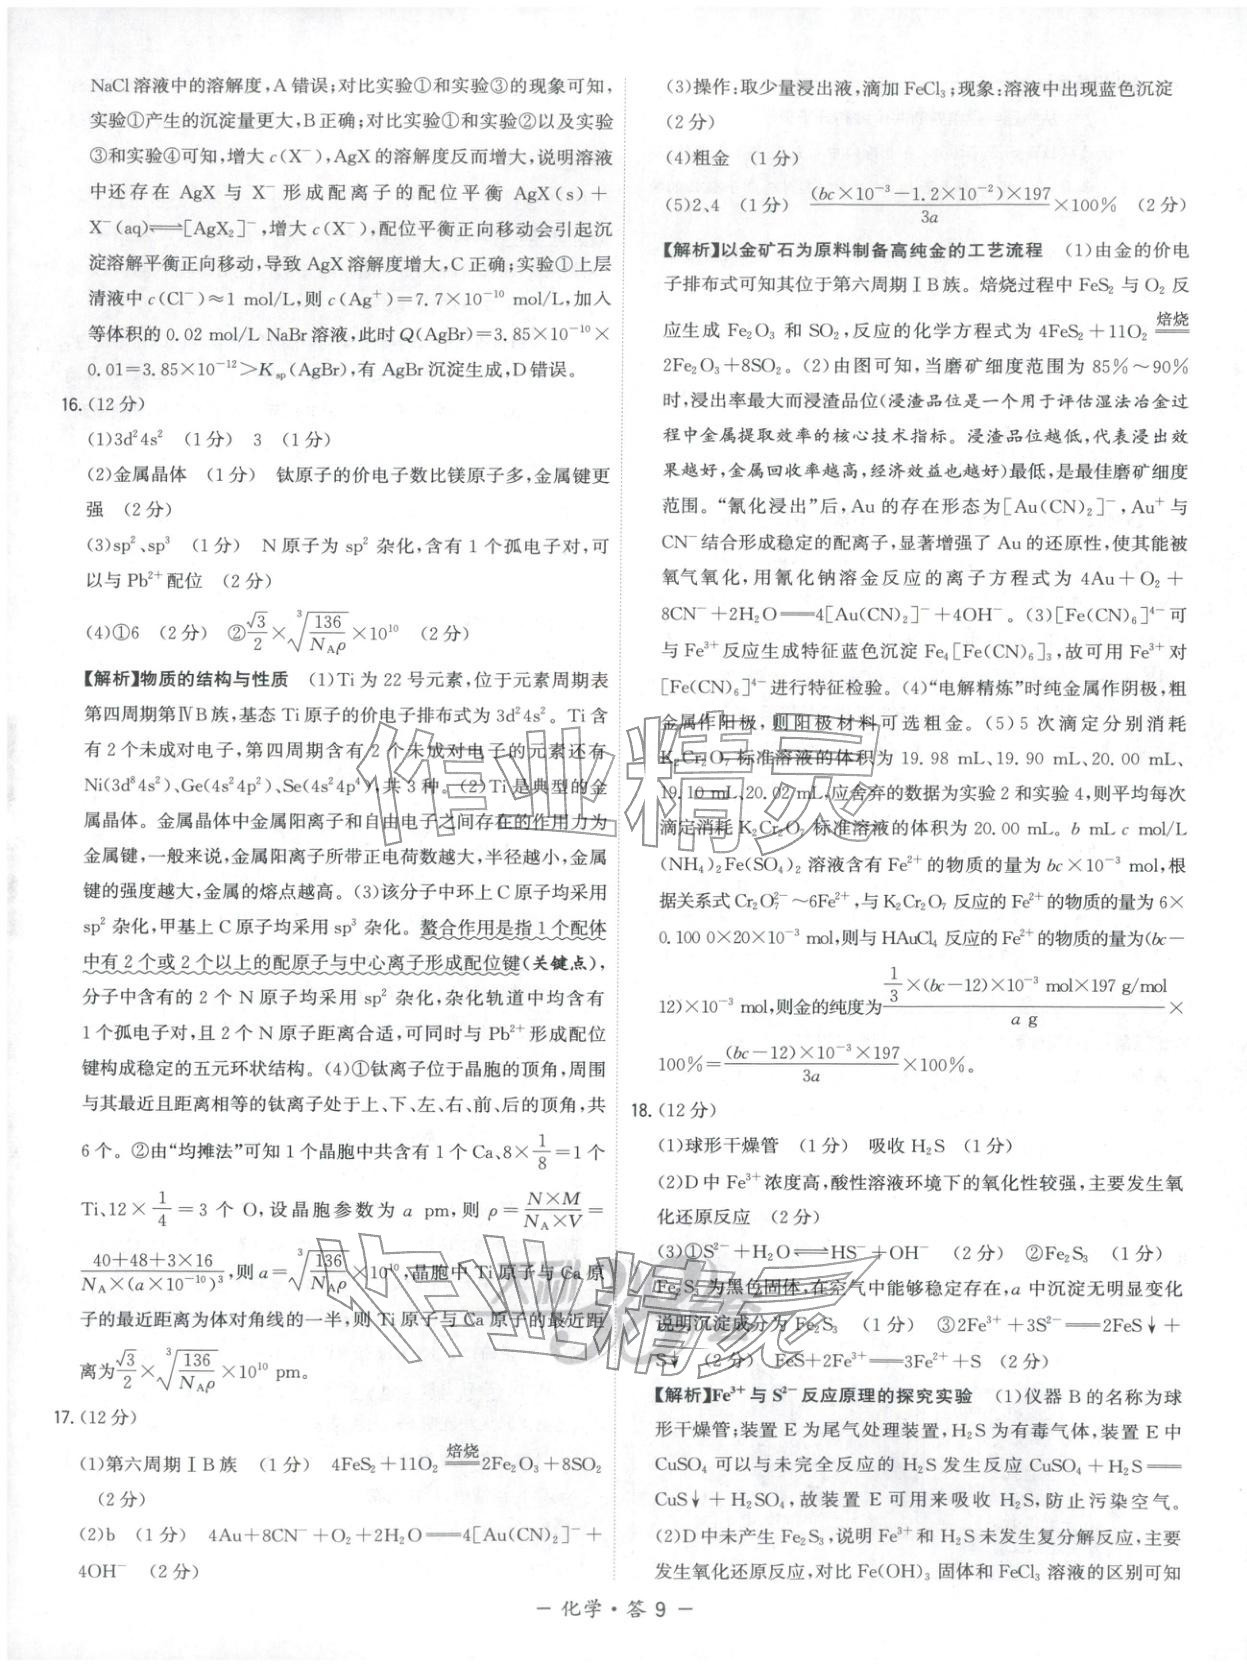 NaCl溶液中的溶解度,A错误;对比实验①和实验③的现象可知,
实验①产生的沉淀量更大,B正确;对比实验①和实验②以及实验
③和实验④可知,增大c(X⁻),AgX的溶解度反而增大,说明溶液
中还存在 AgX 与 X⁻ 形成配离子的配位平衡 AgX(s)+
X⁻(aq)⇌[AgX₂]⁻,增大c(X⁻),配位平衡正向移动会引起沉
淀溶解平衡正向移动,导致AgX溶解度增大,C正确;实验①上层
清液中c(Cl⁻)≈1 mol/L,则c(Ag⁺)=7.7×10⁻¹⁰ mol/L,加入
等体积的0.02 mol/L NaBr溶液,此时Q(AgBr)=3.85×10⁻¹⁰×
0.01=3.85×10⁻¹²>Ksp(AgBr),有AgBr沉淀生成,D错误。
16.(12分)
(1)3d²4s² (1分) 3 (1分)
(2)金属晶体 (1分) 钛原子的价电子数比镁原子多,金属键更
强 (2分)
(3)sp²、sp³ (1分) N原子为sp²杂化,含有1个孤电子对,可
以与Pb²⁺配位 (2分)
(4)①6 (2分) ②√3/2×∛(136/(N_Aρ))×10¹⁰ (2分)
【解析】物质的结构与性质 (1)Ti为22号元素,位于元素周期表
第四周期第ⅣB族,基态Ti原子的价电子排布式为3d²4s²。Ti含
有2个未成对电子,第四周期含有2个未成对电子的元素还有
Ni(3d⁸4s²)、Ge(4s²4p²)、Se(4s²4p⁴),共3种。(2)Ti是典型的金
属晶体。金属晶体中金属阳离子和自由电子之间存在的作用力为
金属键,一般来说,金属阳离子所带正电荷数越大,半径越小,金属
键的强度越大,金属的熔点越高。(3)该分子中环上C原子均采用
sp²杂化,甲基上C原子均采用sp³杂化。螯合作用是指1个配体
中有2个或2个以上的配原子与中心离子形成配位键(关键点),
分子中含有的2个N原子均采用sp²杂化,杂化轨道中均含有
1个孤电子对,且2个N原子距离合适,可同时与Pb²⁺形成配位
键构成稳定的五元环状结构。(4)①钛离子位于晶胞的顶角,周围
与其最近且距离相等的钛离子处于上、下、左、右、前、后的顶角,共
6个。②由“均摊法”可知1个晶胞中共含有1个Ca、8×1/8=1个
Ti、12×1/4=3个O,设晶胞参数为a pm,则ρ=(N×M)/(N_A×V)=
(40+48+3×16)/(N_A×(a×10⁻¹⁰)³),则a=∛(136/(N_Aρ))×10¹⁰,晶胞中Ti原子与Ca原
子的最近距离为体对角线的一半,则Ti原子与Ca原子的最近距
离为√3/2×∛(136/(N_Aρ))×10¹⁰ pm。
17.(12分)
(1)第六周期ⅠB族 (1分) 4FeS₂+11O₂ =焙烧= 2Fe₂O₃+8SO₂
(2分)
(2)b (1分) 4Au+8CN⁻+O₂+2H₂O══4[Au(CN)₂]⁻+
4OH⁻ (2分)
(3)操作:取少量浸出液,滴加FeCl₃;现象:溶液中出现蓝色沉淀
(2分)
(4)粗金 (1分)
(5)2、4 (1分) ((bc×10⁻³-1.2×10⁻²)×197)/3a×100% (2分)
【解析】以金矿石为原料制备高纯金的工艺流程 (1)由金的价电
子排布式可知其位于第六周期ⅠB族。焙烧过程中FeS₂与O₂反
应生成Fe₂O₃和SO₂,反应的化学方程式为4FeS₂+11O₂ =焙烧=
2Fe₂O₃+8SO₂。(2)由图可知,当磨矿细度范围为85%~90%
时,浸出率最大而浸渣品位(浸渣品位是一个用于评估湿法冶金过
程中金属提取效率的核心技术指标。浸渣品位越低,代表浸出效
果越好,金属回收率越高,经济效益也越好)最低,是最佳磨矿细度
范围。“氰化浸出”后,Au的存在形态为[Au(CN)₂]⁻,Au⁺与
CN⁻结合形成稳定的配离子,显著增强了Au的还原性,使其能被
氧气氧化,用氰化钠溶金反应的离子方程式为4Au+O₂+
8CN⁻+2H₂O══4[Au(CN)₂]⁻+4OH⁻。(3)[Fe(CN)₆]⁴⁻可
与Fe³⁺反应生成特征蓝色沉淀Fe₄[Fe(CN)₆]₃,故可用Fe³⁺对
[Fe(CN)₆]⁴⁻进行特征检验。(4)“电解精炼”时纯金属作阴极,粗
金属作阳极,则阳极材料可选粗金。(5)5次滴定分别消耗
K₂Cr₂O₇标准溶液的体积为19.98 mL、19.90 mL、20.00 mL、
19.10 mL、20.02 mL,应舍弃的数据为实验2和实验4,则平均每次
滴定消耗K₂Cr₂O₇标准溶液的体积为20.00 mL。b mL c mol/L
(NH₄)₂Fe(SO₄)₂溶液含有Fe²⁺的物质的量为bc×10⁻³ mol,根
据关系式Cr₂O₇²⁻~6Fe²⁺,与K₂Cr₂O₇反应的Fe²⁺的物质的量为6×
0.100 0×20×10⁻³ mol,则与HAuCl₄反应的Fe²⁺的物质的量为(bc-
12)×10⁻³ mol,则金的纯度为(1/3×(bc-12)×10⁻³ mol×197 g/mol)/(a g)×
100%=((bc-12)×10⁻³×197)/3a×100%。
18.(12分)
(1)球形干燥管 (1分) 吸收H₂S (1分)
(2)D中Fe³⁺浓度高,酸性溶液环境下的氧化性较强,主要发生氧
化还原反应 (2分)
(3)①S²⁻+H₂O⇌HS⁻+OH⁻ (2分) ②Fe₂S₃ (1分)
Fe₂S₃为黑色固体,在空气中能够稳定存在,a中沉淀无明显变化
说明沉淀成分为Fe₂S₃ (1分) ③2Fe³⁺+3S²⁻══2FeS↓+
S↓ (2分) FeS+2Fe³⁺══3Fe²⁺+S (2分)
【解析】Fe³⁺与S²⁻反应原理的探究实验 (1)仪器B的名称为球
形干燥管;装置E为尾气处理装置,H₂S为有毒气体,装置E中
CuSO₄可以与未完全反应的H₂S发生反应CuSO₄+H₂S══
CuS↓+H₂SO₄,故装置E可用来吸收H₂S,防止污染空气。
(2)D中未产生Fe₂S₃,说明Fe³⁺和H₂S未发生复分解反应,主要
发生氧化还原反应,对比Fe(OH)₃固体和FeCl₃溶液的区别可知
— 化学·答 9 —
作业精灵
作业精灵